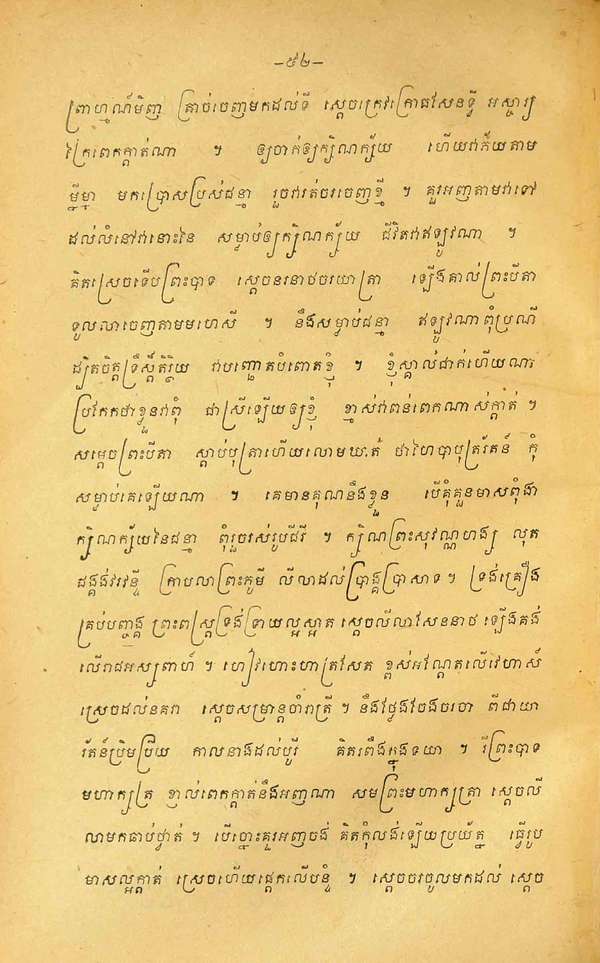 –៥២–
ព្រាហ្មណ៍មិញ ត្រាច់ចេញមកដល់ទី ស្ដេចក្រេវក្រោធសែនទ្វី អស្ចារ្យ
ក្រៃពេកក្កាត់ណា ។ ឲ្យចាក់ឲ្យក្សិណក្ស័យ ហើយរាភ័យតាម
ម្នីម្នា មកប្រោសប្រស់ជន្មា រួចរាត់ចរចេញខ្មី ។ គួរអញតាមរាទៅ
ដល់លំនៅរានោះនៃ សម្លាប់ឲ្យក្សិណក្ស័យ ជីវិតរាឥឡូវណា ។
គិតស្រេចទើបព្រះបាទ ស្ដេចនរនាថចរយាត្រា ឡើងគាល់ព្រះបីតា
ទូលលាចេញតាមមហេសី ។ នឹងសម្លាប់ជន្មា ឥឡូវណាពុំប្រណី
ដ្បិតចិត្តទ្រឹស្តីតិរិ្ថយ រាបញ្ឆោតបំពោតខ្ញុំ ។ ខ្ញុំស្គាល់ជាក់ហើយណា
ប្រកែកថាខ្លួនរាពុំ ជាស្រីឡើយឲ្យខ្ញុំ ខ្មាស់រាពន់ពេកណាស់ក្កាត់ ។
សម្ដេចព្រះបីតា ស្ដាប់បុត្រាហើយលោមឃាត់ ថាហៃបាបុត្ររ័តន៍ កុំ
សម្លាប់គេឡើយណា ។ គេមានគុណនឹងខ្លួន បើគុំគួនមាសពុំងា
ក្សិណក្ស័យនៃជន្មា ពុំរួចរស់រូបជីវី ។ ក្សិណព្រះសុវណ្ណហង្ស លុត
ជង្គង់វរវន្ទី ក្រាបលាព្រះភូមី លីលាដល់ប្រាង្គប្រាសាទ ។ ទ្រង់គ្រឿង
គ្រប់បញ្ចង្គ ព្រះពស្ត្រទ្រង់ទ្រាយល្អស្អាត ស្ដេចលីលាសែននាថ ឡើងគង់
លើរាជអស្សពាហ៍ ។ ហៀវហោះហាត្រសែត ខ្ពស់អណ្ដែតលើវេហាស៍
ស្រេចដល់នគរា ស្ដេចសម្រាន្តចាំរាត្រី ។ នឹងថ្លែងចែងចរចា ពីជាយា
រ័តន៍ប្រិមប្រិយ កាលនាងដល់បូរី គិតរពឹងក្នុងទយា ។ រីព្រះបាទ
មហាក្សត្រ ខ្ញាល់ពេកក្កាត់នឹងអញណា សមព្រះមហាក្សត្រា ស្ដេចលី
លាមកឆាប់ថ្វាត់ ។ បើច្នោះគួរអញចង់ គិតកុំលង់ឡើយប្រយ័ត្ន ធ្វើរូប
មាសល្អក្កាត់ ស្រេចហើយផ្ដេកលើបន្ទំ ។ ស្ដេចចរចូលមកដល់ ស្ដេច